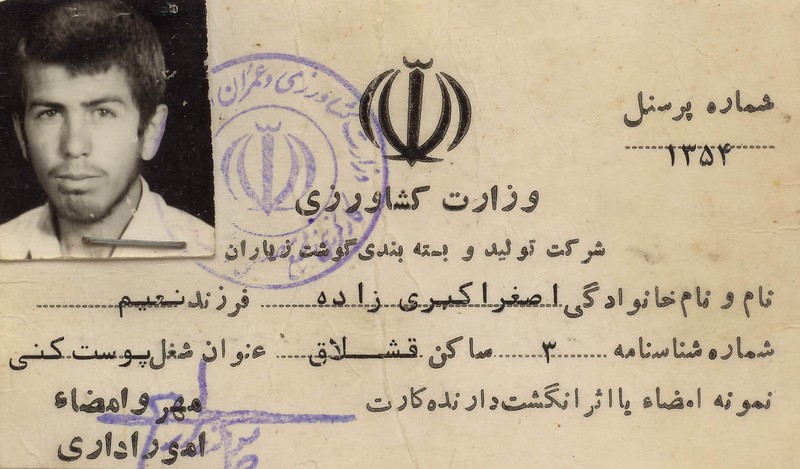 شماره پرسنل
۱۳۵۴
وزارت کشاورزی
شرکت تولید و بسته بندی گوشت زیاران
نام و نام خانوادگی اصغر اکبری زاده فرزند نعیم
شماره شناسنامه ۳ ساکن قشلاق عنوان شغل پوست کنی
نمونه امضاء یا اثر انگشت دارنده کارت
مهر و امضاء
امور اداری
وزارت کشاورزی و عمران